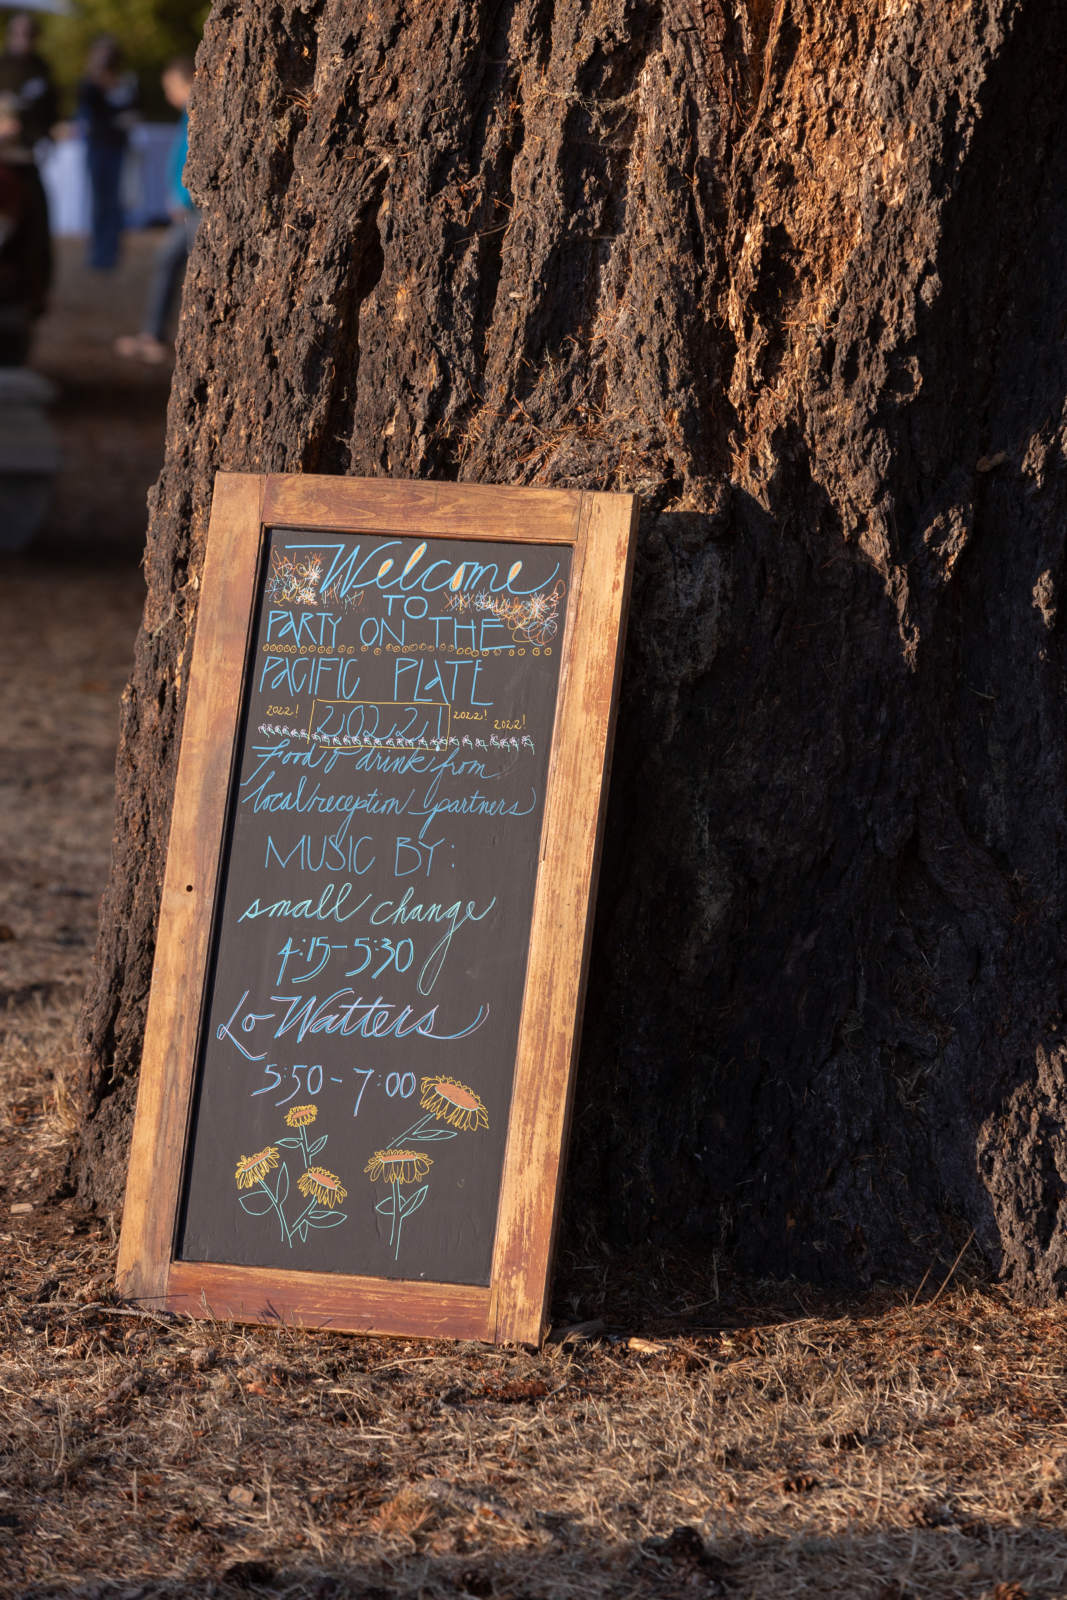 Welcome
TO
PARTY ON THE
PACIFIC PLATE
2022! 2022! 2022! 2022!
Food & drink from
local reception partners
MUSIC BY:
small change
4:15-5:30
Lo Watters
5:50-7:00